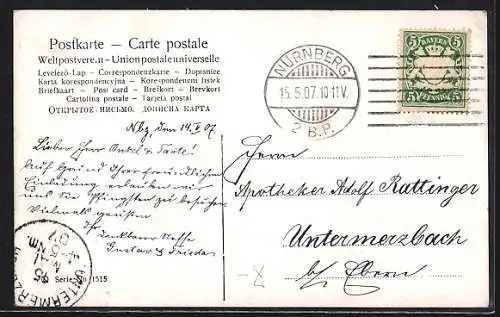 Postkarte — Carte postale
Weltpostverein - Union postale universelle
Levelező-Lap - Correspondenzkarte - Dopisnice
Karta korespondencyjna - Korespondenční lístek
Briefkaart - Post card - Brefkort - Brevkort
Cartolina postale - Tarjeta postal
ОТКРЫТОЕ - ПИСЬМО. ДОПИСНА КАРТА
NÜRNBERG
15.5.07.10-11V.
2 B.P.
5 BAYERN 5
5 PFENNIG 5
Nbg. den 14.V.07.
Lieber Herr Onkel & Tante!
Auf Grund Ihrer freundlichen
Einladung erlauben wir
uns Sie Pfingsten zu besuchen
Vielmals grüssen
Ihr
dankbarer Neffe
Gustav & Frieda
Herrn
Apotheker Adolf Rattinger
Untermerzbach
b/ Ebern
UNTERMERZB
15
MAI
07
Serie 1515